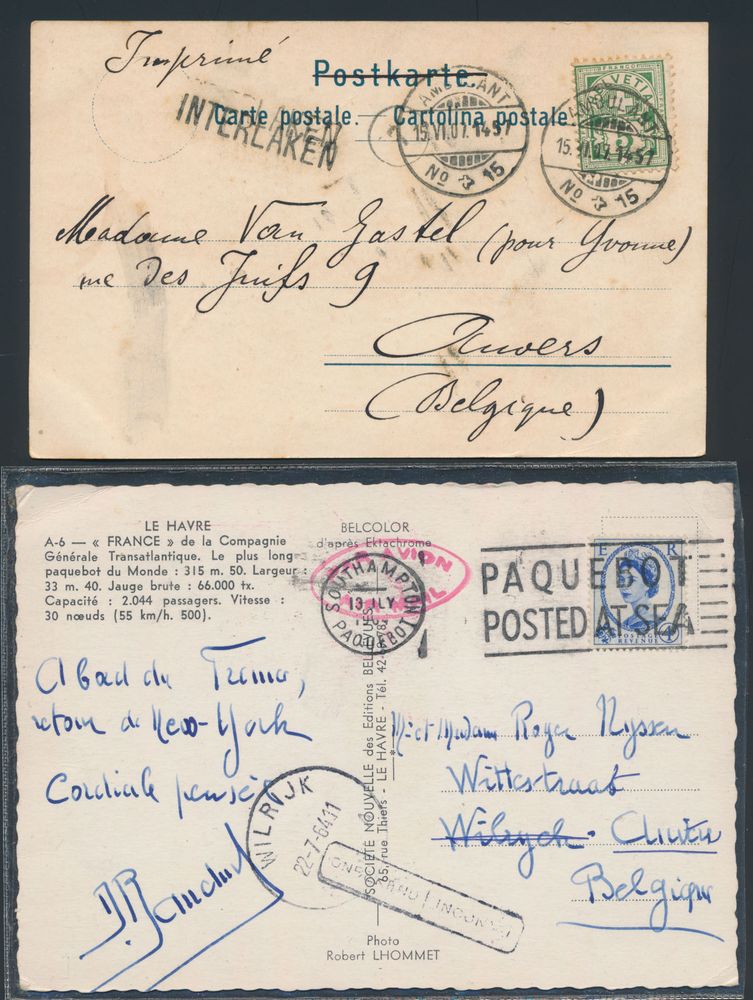 Imprimé
Postkarte.
Carte postale. — Cartolina postale.
INTERLAKEN
AMBULANT
15.VI.07.1457
No 3 15
HELVETIA
FRANCO
AMBULANT
15.VI.07.1457
No 3 15
Madame Van Gastel (pour Yvonne)
rue des Juifs 9
Anvers
(Belgique)
LE HAVRE
A-6 — « FRANCE » de la Compagnie
Générale Transatlantique. Le plus long
paquebot du Monde : 315 m. 50. Largeur :
33 m. 40. Jauge brute : 66.000 tx.
Capacité : 2.044 passagers. Vitesse :
30 nœuds (55 km/h. 500).
BELCOLOR
d'après Ektachrome
PAR AVION
SOUTHAMPTON
13 JLY
PAQUEBOT
PAQUEBOT
POSTED AT SEA
E R
POSTAGE
REVENUE
4D
A bord du France,
retour de New-York
Cordiale pensée
Mr et Madame Roger Nyssen
Wittestraat
Wilryck - Anvers
Belgique
WILRIJK
22-7-64 11
ONBEKEND | INCONNU
SOCIETE NOUVELLE des Editions BELLEVUES
65, rue Thiers - LE HAVRE - Tél. 42-
Photo
Robert LHOMMET